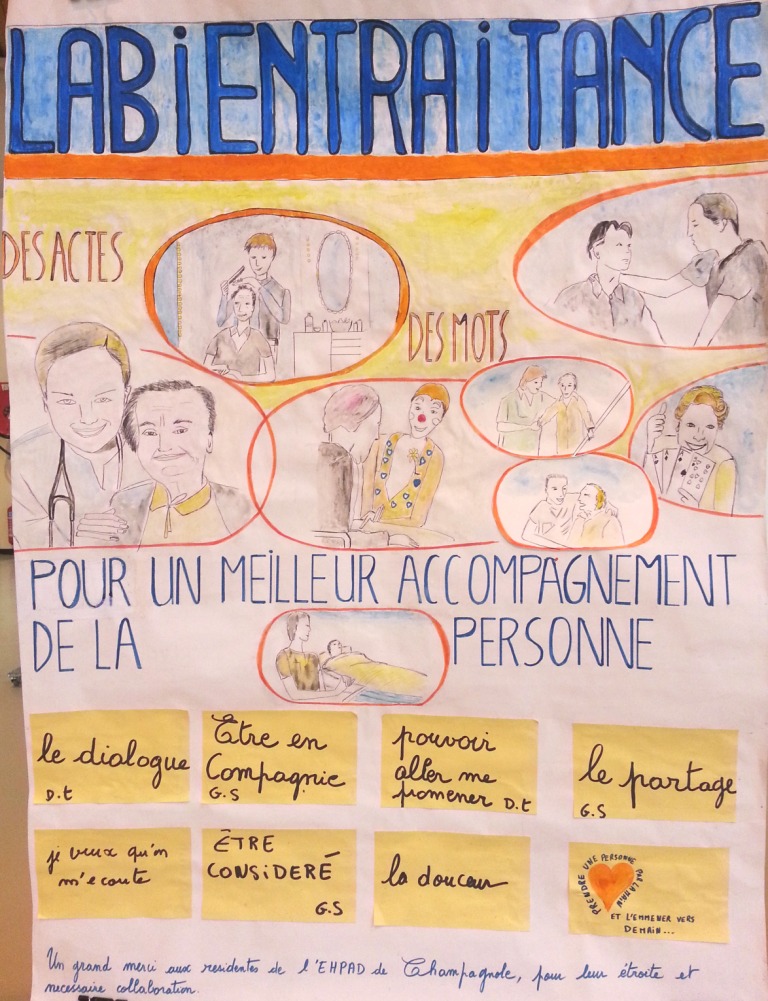 LABiENTRAiTANCE
DES ACTES
DES MOTS
POUR UN MEiLLEUR ACCOMPAGNEMENT
DE LA PERSONNE
le dialogue
D.t
Etre en
Compagnie
G.S
pouvoir
aller me
promener D.t
le partage
G.S
je veux qu'on
m'ecoute
ÊTRE
CONSiDERÉ
G.S
la douceur
PRENDRE UNE PERSONNE PAR LA MAIN
ET L'EMMENER VERS
DEMAIN...
Un grand merci aux residentes de l'EHPAD de Champagnole, pour leur étroite et
necessaire collaboration.